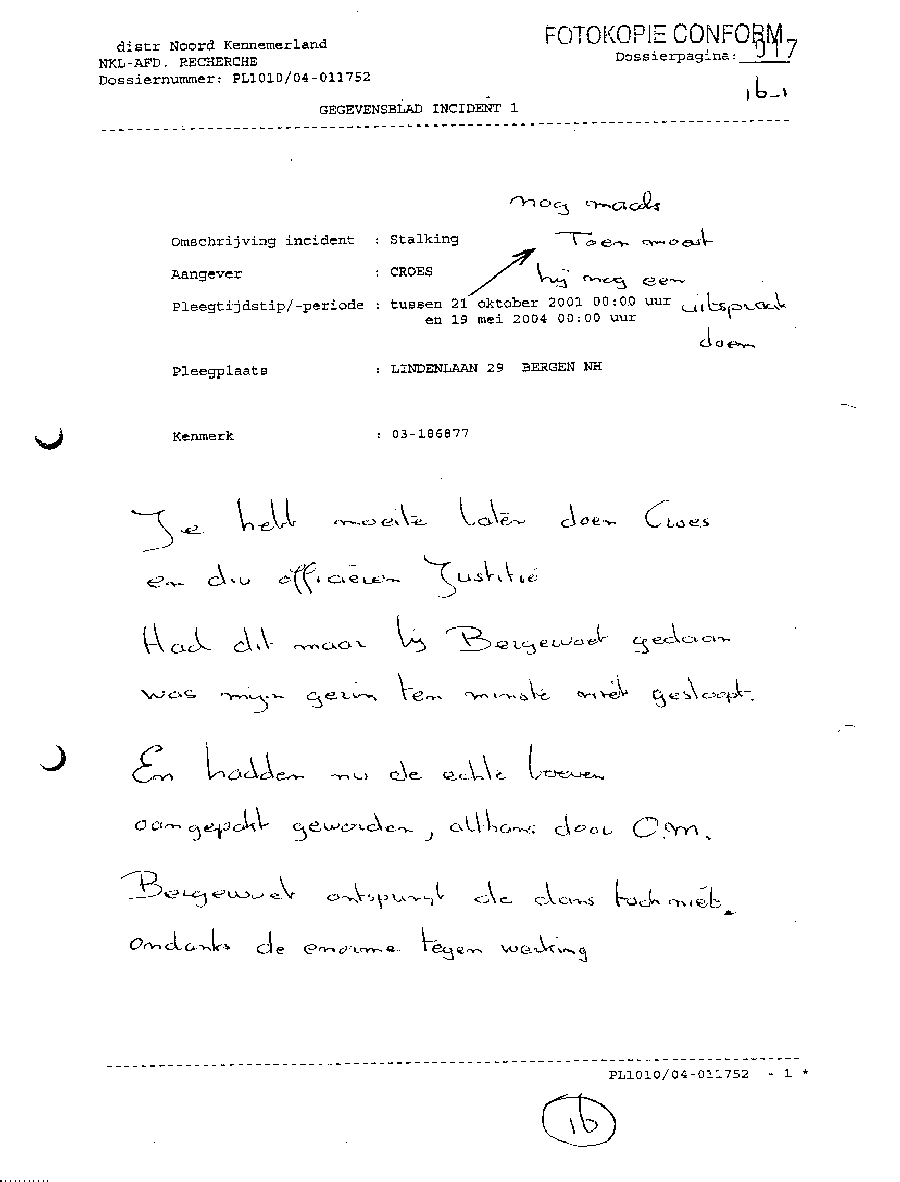 FOTOKOPIE CONFORM
distr Noord Kennemerland
NKL-AFD. RECHERCHE
Dossierpagina: 017
Dossiernummer: PL1010/04-011752
1b-1
GEGEVENSBLAD INCIDENT 1
nog maals
Omschrijving incident : Stalking
Toen moest
Aangever : CROES
hij nog een
Pleegtijdstip/-periode : tussen 21 oktober 2001 00:00 uur
uitspraak
en 19 mei 2004 00:00 uur
doen
Pleegplaats : LINDENLAAN 29 BERGEN NH
Kenmerk : 03-186877
Je hebt moeite laten doen Croes
en div officieren Justitie
Had dit maar bij Bergewoet gedaan
was mijn gezin ten minste niet gesloopt.
En hadden nu de echte boeven
aangepakt geworden, althans door O.M.
Bergewoet ontspringt de dans toch niet.
ondanks de enorme tegen werking
PL1010/04-011752 - 1 *
1b